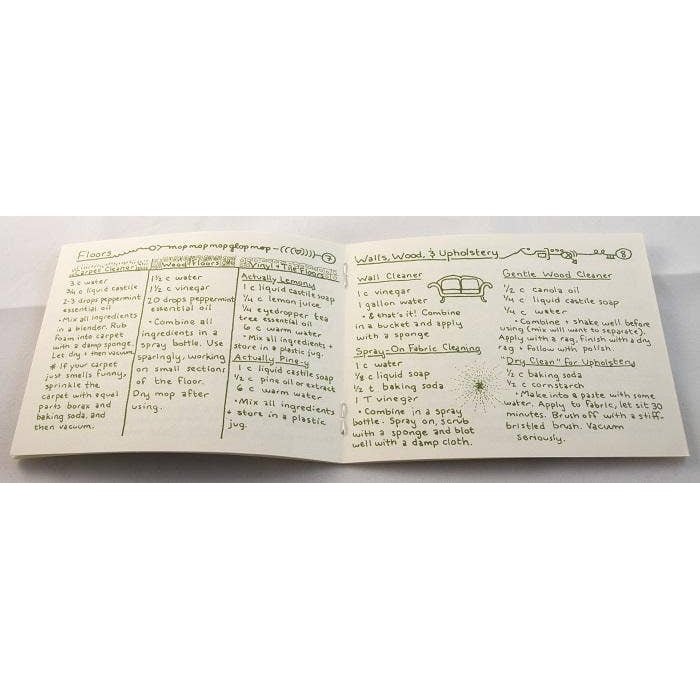 Floors
mop mop mop glop mop
7
Carpet Cleaner
3 c water
3/4 c liquid castile
2-3 drops peppermint
essential oil
• Mix all ingredients
in a blender. Rub
foam into carpet
with a damp sponge.
Let dry + then vacuum.
* If your carpet
just smells funny,
sprinkle the
carpet with equal
parts borax and
baking soda, and
then vacuum.
Wood Floors
1½ c water
1½ c vinegar
20 drops peppermint
essential oil
• Combine all
ingredients in a
spray bottle. Use
sparingly, working
on small sections
of the floor.
Dry mop after
using.
Vinyl + Tile Floors
Actually Lemony
1 c liquid castile soap
¼ c lemon juice
¼ eyedropper tea
tree essential oil
6 c warm water
• Mix all ingredients +
store in a plastic jug.
Actually Pine-y
1 c liquid castile soap
½ c pine oil or extract
6 c warm water
• Mix all ingredients
+ store in a plastic
jug.
Walls, Wood, & Upholstery
8
Wall Cleaner
1 c vinegar
1 gallon water
• & that's it! Combine
in a bucket and apply
with a sponge
Spray-On Fabric Cleaning
1 c water
1/8 c liquid soap
½ t. baking soda
1 T vinegar
• Combine in a spray
bottle. Spray on, scrub
with a sponge and blot
well with a damp cloth.
Gentle Wood Cleaner
½ c canola oil
¼ c liquid castile soap
¼ c water
• Combine + shake well before
using (mix will want to separate).
Apply with a rag, finish with a dry
rag + follow with polish.
"Dry Clean" for Upholstery
½ c baking soda
½ c cornstarch
• Make into a paste with some
water. Apply to fabric, let sit 30
minutes. Brush off with a stiff-
bristled brush. Vacuum
seriously.